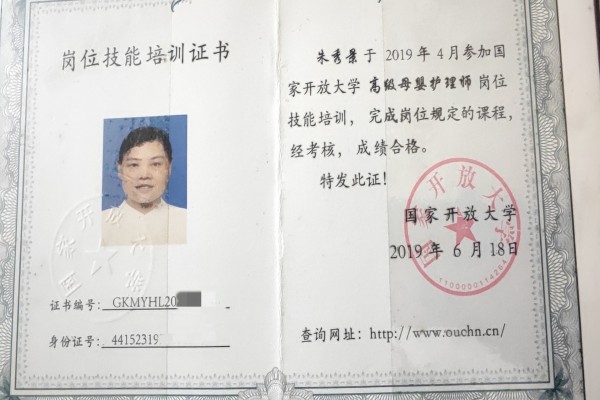 岗位技能培训证书
证书编号: GKMYHL20
身份证号: 44152319
朱秀景于 2019 年 4 月参加国
家开放大学 高级母婴护理师 岗位
技能培训，完成岗位规定的课程，
经考核，成绩合格。
特发此证！
国家开放大学
2019 年 6 月 18日
国家开放大学
1100000114204
查询网址: http://www.ouchn.cn/